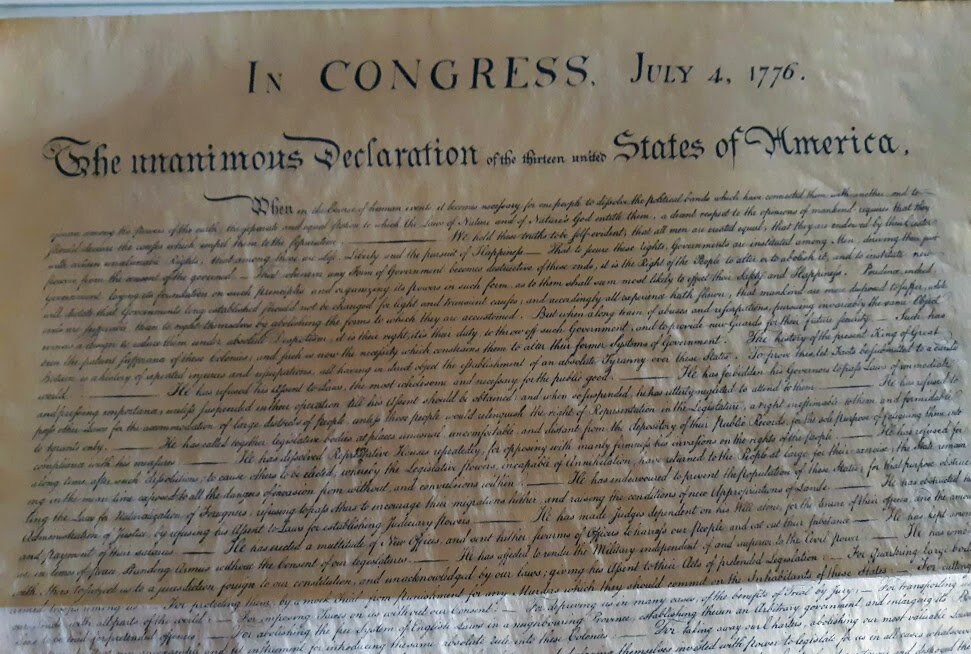 IN CONGRESS, JULY 4, 1776.
The unanimous Declaration of the thirteen united States of America.
When in the Course of human events, it becomes necessary for one people to dissolve the political bands which have connected them with another, and to
among the powers of the earth, the separate and equal station to which the Laws of Nature and of Nature's God entitle them, a decent respect to the opinions of mankind requires that they
should declare the causes which impel them to the separation. ——— We hold these truths to be self-evident, that all men are created equal, that they are endowed by their Creator
with certain unalienable Rights, that among these are Life, Liberty and the pursuit of Happiness.— That to secure these rights, Governments are instituted among Men, deriving their just
powers from the consent of the governed,— That whenever any Form of Government becomes destructive of these ends, it is the Right of the People to alter or to abolish it, and to institute new
Government, laying its foundation on such principles and organizing its powers in such form, as to them shall seem most likely to effect their Safety and Happiness. Prudence, indeed,
will dictate that Governments long established should not be changed for light and transient causes; and accordingly all experience hath shewn, that mankind are more disposed to suffer, while
evils are sufferable, than to right themselves by abolishing the forms to which they are accustomed. But when a long train of abuses and usurpations, pursuing invariably the same Object
evinces a design to reduce them under absolute Despotism, it is their right, it is their duty, to throw off such Government, and to provide new Guards for their future security.— Such has
been the patient sufferance of these Colonies; and such is now the necessity which constrains them to alter their former Systems of Government. The history of the present King of Great
Britain is a history of repeated injuries and usurpations, all having in direct object the establishment of an absolute Tyranny over these States. To prove this, let Facts be submitted to a candid
world. ——— He has refused his Assent to Laws, the most wholesome and necessary for the public good. ——— He has forbidden his Governors to pass Laws of immediate
and pressing importance, unless suspended in their operation till his Assent should be obtained; and when so suspended, he has utterly neglected to attend to them. ——— He has refused to
pass other Laws for the accommodation of large districts of people, unless those people would relinquish the right of Representation in the Legislature, a right inestimable to them and formidable
to tyrants only. ——— He has called together legislative bodies at places unusual, uncomfortable, and distant from the depository of their Public Records, for the sole purpose of fatiguing them into
compliance with his measures. ——— He has dissolved Representative Houses repeatedly, for opposing with manly firmness his invasions on the rights of the people. ——— He has refused for
a long time, after such dissolutions, to cause others to be elected; whereby the Legislative powers, incapable of Annihilation, have returned to the People at large for their exercise; the State remain-
ing in the mean time exposed to all the dangers of invasion from without, and convulsions within. ——— He has endeavoured to prevent the population of these States; for that purpose obstruct-
ting the Laws for Naturalization of Foreigners; refusing to pass others to encourage their migrations hither, and raising the conditions of new Appropriations of Lands. ——— He has obstructed the
Administration of Justice, by refusing his Assent to Laws for establishing Judiciary powers. ——— He has made Judges dependent on his Will alone, for the tenure of their offices, and the amount
and payment of their salaries. ——— He has erected a multitude of New Offices, and sent hither swarms of Officers to harrass our people, and eat out their substance. ——— He has kept among
us, in times of peace, Standing Armies without the Consent of our legislatures. ——— He has affected to render the Military independent of and superior to the Civil power. ——— He has combin
with others to subject us to a jurisdiction foreign to our constitution, and unacknowledged by our laws; giving his Assent to their Acts of pretended Legislation:— For Quartering large bodies
armed troops among us:— For protecting them, by a mock Trial, from punishment for any Murders which they should commit on the Inhabitants of these States:— For cutting
with all parts of the world:— For imposing Taxes on us without our Consent:— For depriving us in many cases, of the benefits of Trial by Jury:— For transporting
tried for pretended offences— For abolishing the free System of English Laws in a neighbouring Province, establishing therein an Arbitrary government, and enlarging its
instrument for introducing the same absolute rule into these Colonies:— For taking away our Charters, abolishing our most valuable
themselves invested with power to legislate for us in all cases whatsoever